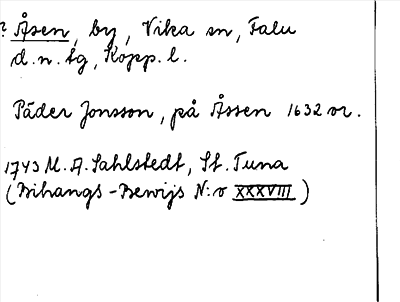 ? Åsen, by, Vika sn, Falu
d.n. tg, Kopp. l.
Päder Jonsson, på Åssen 1632 vr.
1743 M. A. Sahlstedt, St. Tuna
(Bihangs-Bewijs N:o XXXVIII)